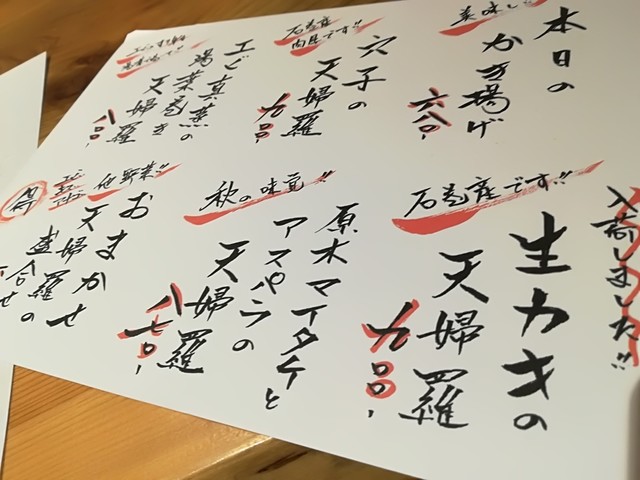 本日の
美味しい!!
かき揚げ
六八〇-
石巻産
肉厚です!!
穴子の
天婦羅
九〇〇-
エビ真薯の
湯葉巻き
天婦羅
八〇〇-
入荷しました!!
石巻産です!!
生カキの
天婦羅
九〇〇-
秋の味覚!!
原木マイタケと
アスパラの
天婦羅
八七〇-
他野菜!!
おまかせ
天婦羅の
盛合せ